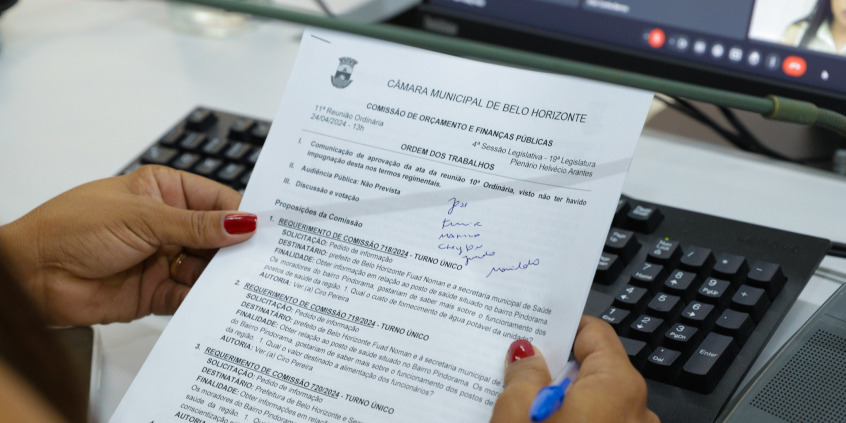 CÂMARA MUNICIPAL DE BELO HORIZONTE
COMISSÃO DE ORÇAMENTO E FINANÇAS PÚBLICAS
11ª Reunião Ordinária
24/04/2024 - 13h
4ª Sessão Legislativa - 19ª Legislatura
Plenário Helvécio Arantes
ORDEM DOS TRABALHOS
I. Comunicação de aprovação da ata da reunião 10ª Ordinária, visto não ter havido
impugnação desta nos termos regimentais.
II. Audiência Pública: Não Prevista
III. Discussão e votação
Proposições da Comissão
1. REQUERIMENTO DE COMISSÃO 718/2024 - TURNO ÚNICO
SOLICITAÇÃO: Pedido de informação
DESTINATÁRIO: prefeito de Belo Horizonte Fuad Noman e a secretaria municipal de Saúde
FINALIDADE: Obter informação em relação ao posto de saúde situado no bairro Pindorama
Os moradores do bairro Pindorama, gostariam de saber mais sobre o funcionamento dos
postos de saúde da região. 1. Qual o custo de fornecimento de água potável da unidade?
AUTORIA: Ver (a) Ciro Pereira
2. REQUERIMENTO DE COMISSÃO 719/2024 - TURNO ÚNICO
SOLICITAÇÃO: Pedido de informação
DESTINATÁRIO: prefeito de Belo Horizonte Fuad Noman e a secretaria municipal de
FINALIDADE: Obter relação ao posto de saúde situado no bairro Pindorama. Os moradores
do Bairro Pindorama, gostariam de saber mais sobre o funcionamento dos postos de
da região. 1. Qual o valor destinado a alimentação dos funcionários?
AUTORIA: Ver (a) Ciro Pereira
3. REQUERIMENTO DE COMISSÃO 720/2024 - TURNO ÚNICO
SOLICITAÇÃO: Pedido de informação
DESTINATÁRIO: Prefeitura de Belo Horizonte e Secr
FINALIDADE: Obter informações em relação
Os moradores do Bairro Pindorama, gost
saúde da região. 1. Q
conscientização
AUTO